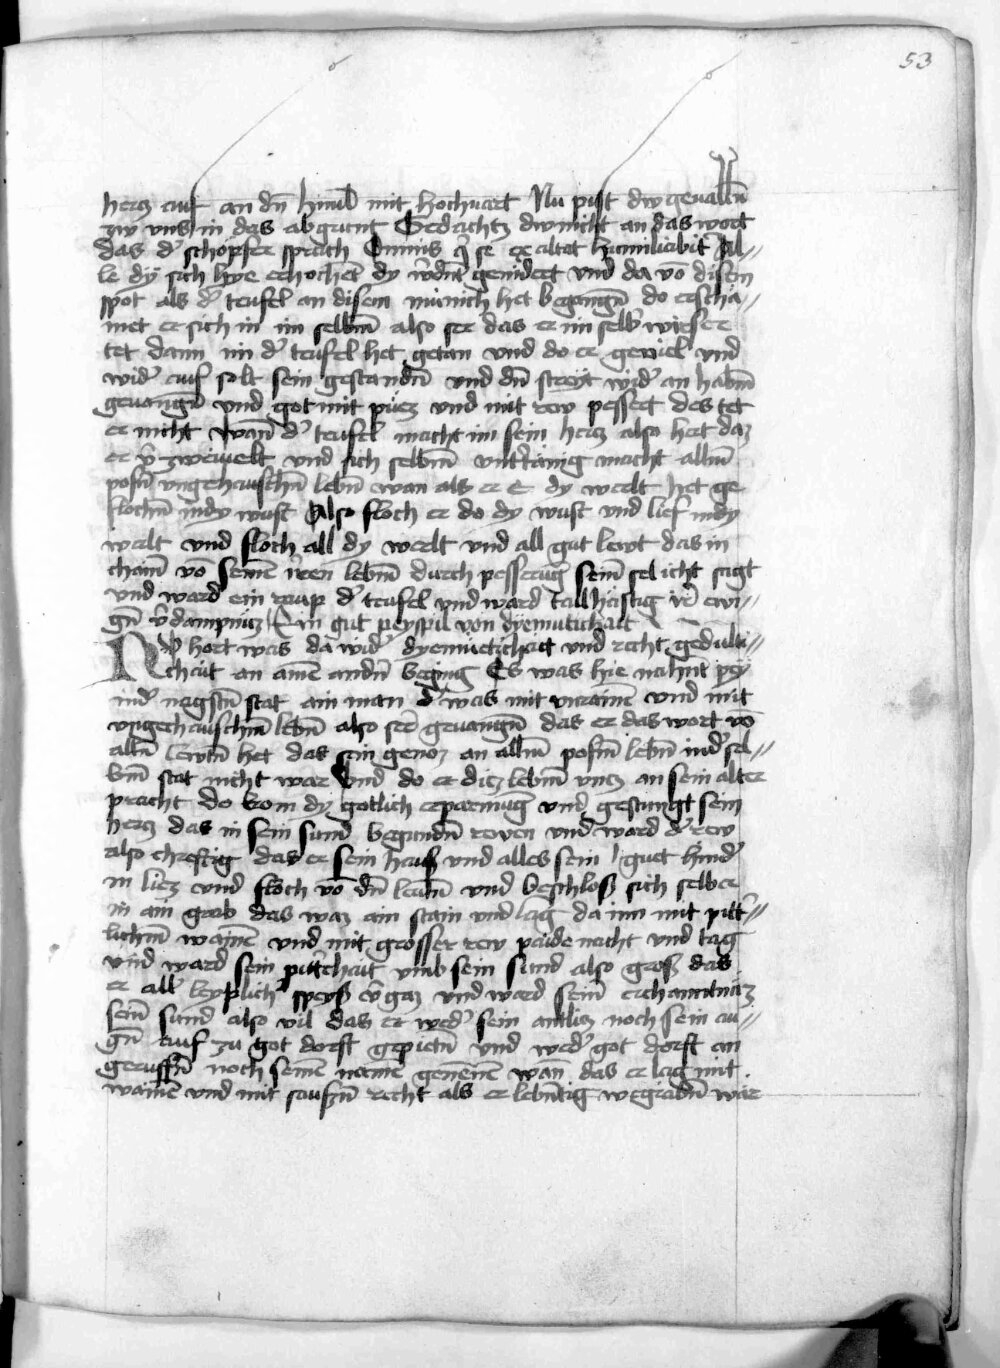 53
hercz auf an dn̄ himl mit hochuart Nu pist dw geuallñ
zw vns in das abgrunt Gedachtz dw nicht an das wort
das d' schopfer sprach Omnis q̄ se exaltat humiliabit' Al=
le dÿ sich hye erhochet dy w'dn̄t genidert vnd da vō disem
spot als d' teufel an disem münich het begangn̄ do erscha=
met er sich in im selbm̄ also ser das er im selb' wirser
tet dann im d' teufel het getan vnd do er geuiel vnd
wid' auf solt sein gestandn̄ vnd dn̄ streyt wid' an habm̄
geuangn̄ vnd got mit puez vnd mit rew pessert des tet
er nicht wan̄ d' teufel macht im sein hercz also hert daz
er v'zweiuelt vnd sich selbm̄ vnt'tänig macht allm̄
posn̄ vngehauschm̄ lebm̄ wan als er e dy werlt het ge
flochn̄ in dy wust Also floch er do dy wust vnd lief in dy
werlt vnd floch all dy werlt vnd all gut lewt das in
chainˉ vō seinē irren lebm̄ durch pesserūg seinˉ sel icht sagt
vnd ward ein raup d' teufel vnd ward tailhäftig d' ewi=
gn̄ v'dampnuz Ein gut peyspil von dyemutichait
Nv hort was da wid' dyemüetichait vnd recht gedulti=
chait an aim andn̄ beging Es was hie nahnt pey
in d' nagstn̄ stat ain man d' was mit vnrainē vnd mit
vngehauschm̄ lebm̄ also ser geuangn̄ das er das wort vō
alln̄ lewtn̄ het das sein genoz an allm̄ posm̄ lebm̄ in d' sel=
bm̄ stat nicht war Vnd do er dicz lebm̄ vncz an sein alter
pracht do kom dy gotlich erparmūg vnd gestungt sein
hercz das in sein sund begundn̄ rewen vnd ward d' rew
also chreftig das er sein haus vnd alles sein guet hind'
im liez vnd floch vō dn̄ lewtn̄ vnd beschloss sich selber
in ain grab das waz ain stain vnd lag da inn mit pitt'=
lichm̄ wainē vnd mit grosser rew paide nacht vnd tag
vnd ward sein pitt'chait vmb sein sund also gross das
er all' leyplich' speyss v'gaz vnd ward seinˉ erchantnuz
seinˉ sund also vil das er wed' sein antlicz noch sein au=
gn̄ auf zu got dorft gepietn̄ vnd wed' got dorft an
geruffn̄ noch seinē namē genenē wan das er lag mit
wainē vnd mit saufczn̄ recht als er lebntig wegrabn̄ wär